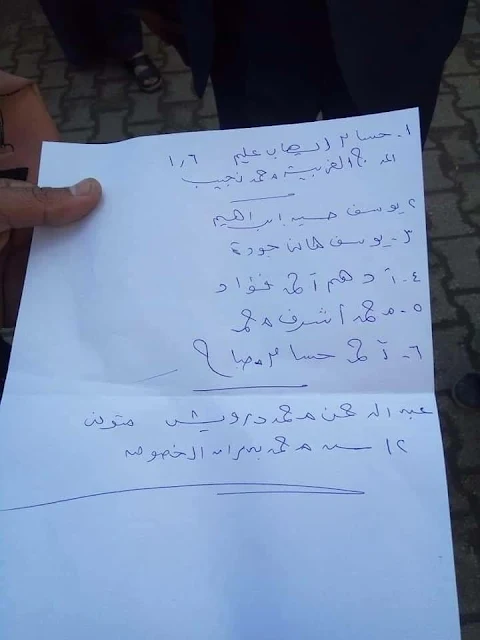 ١- حسام ايهاب عليم ١،٦
العربية محمد نجيب
٢ يوسف حسين ابراهيم
٣- يوسف هانى جودة
٤- أدهم أحمد فؤاد
٥- محمد أشرف محمد
٦- أحمد حسام صباح
عبد الرحمن محمد درويش متوفى
١٢ محمد بدران الخصوص